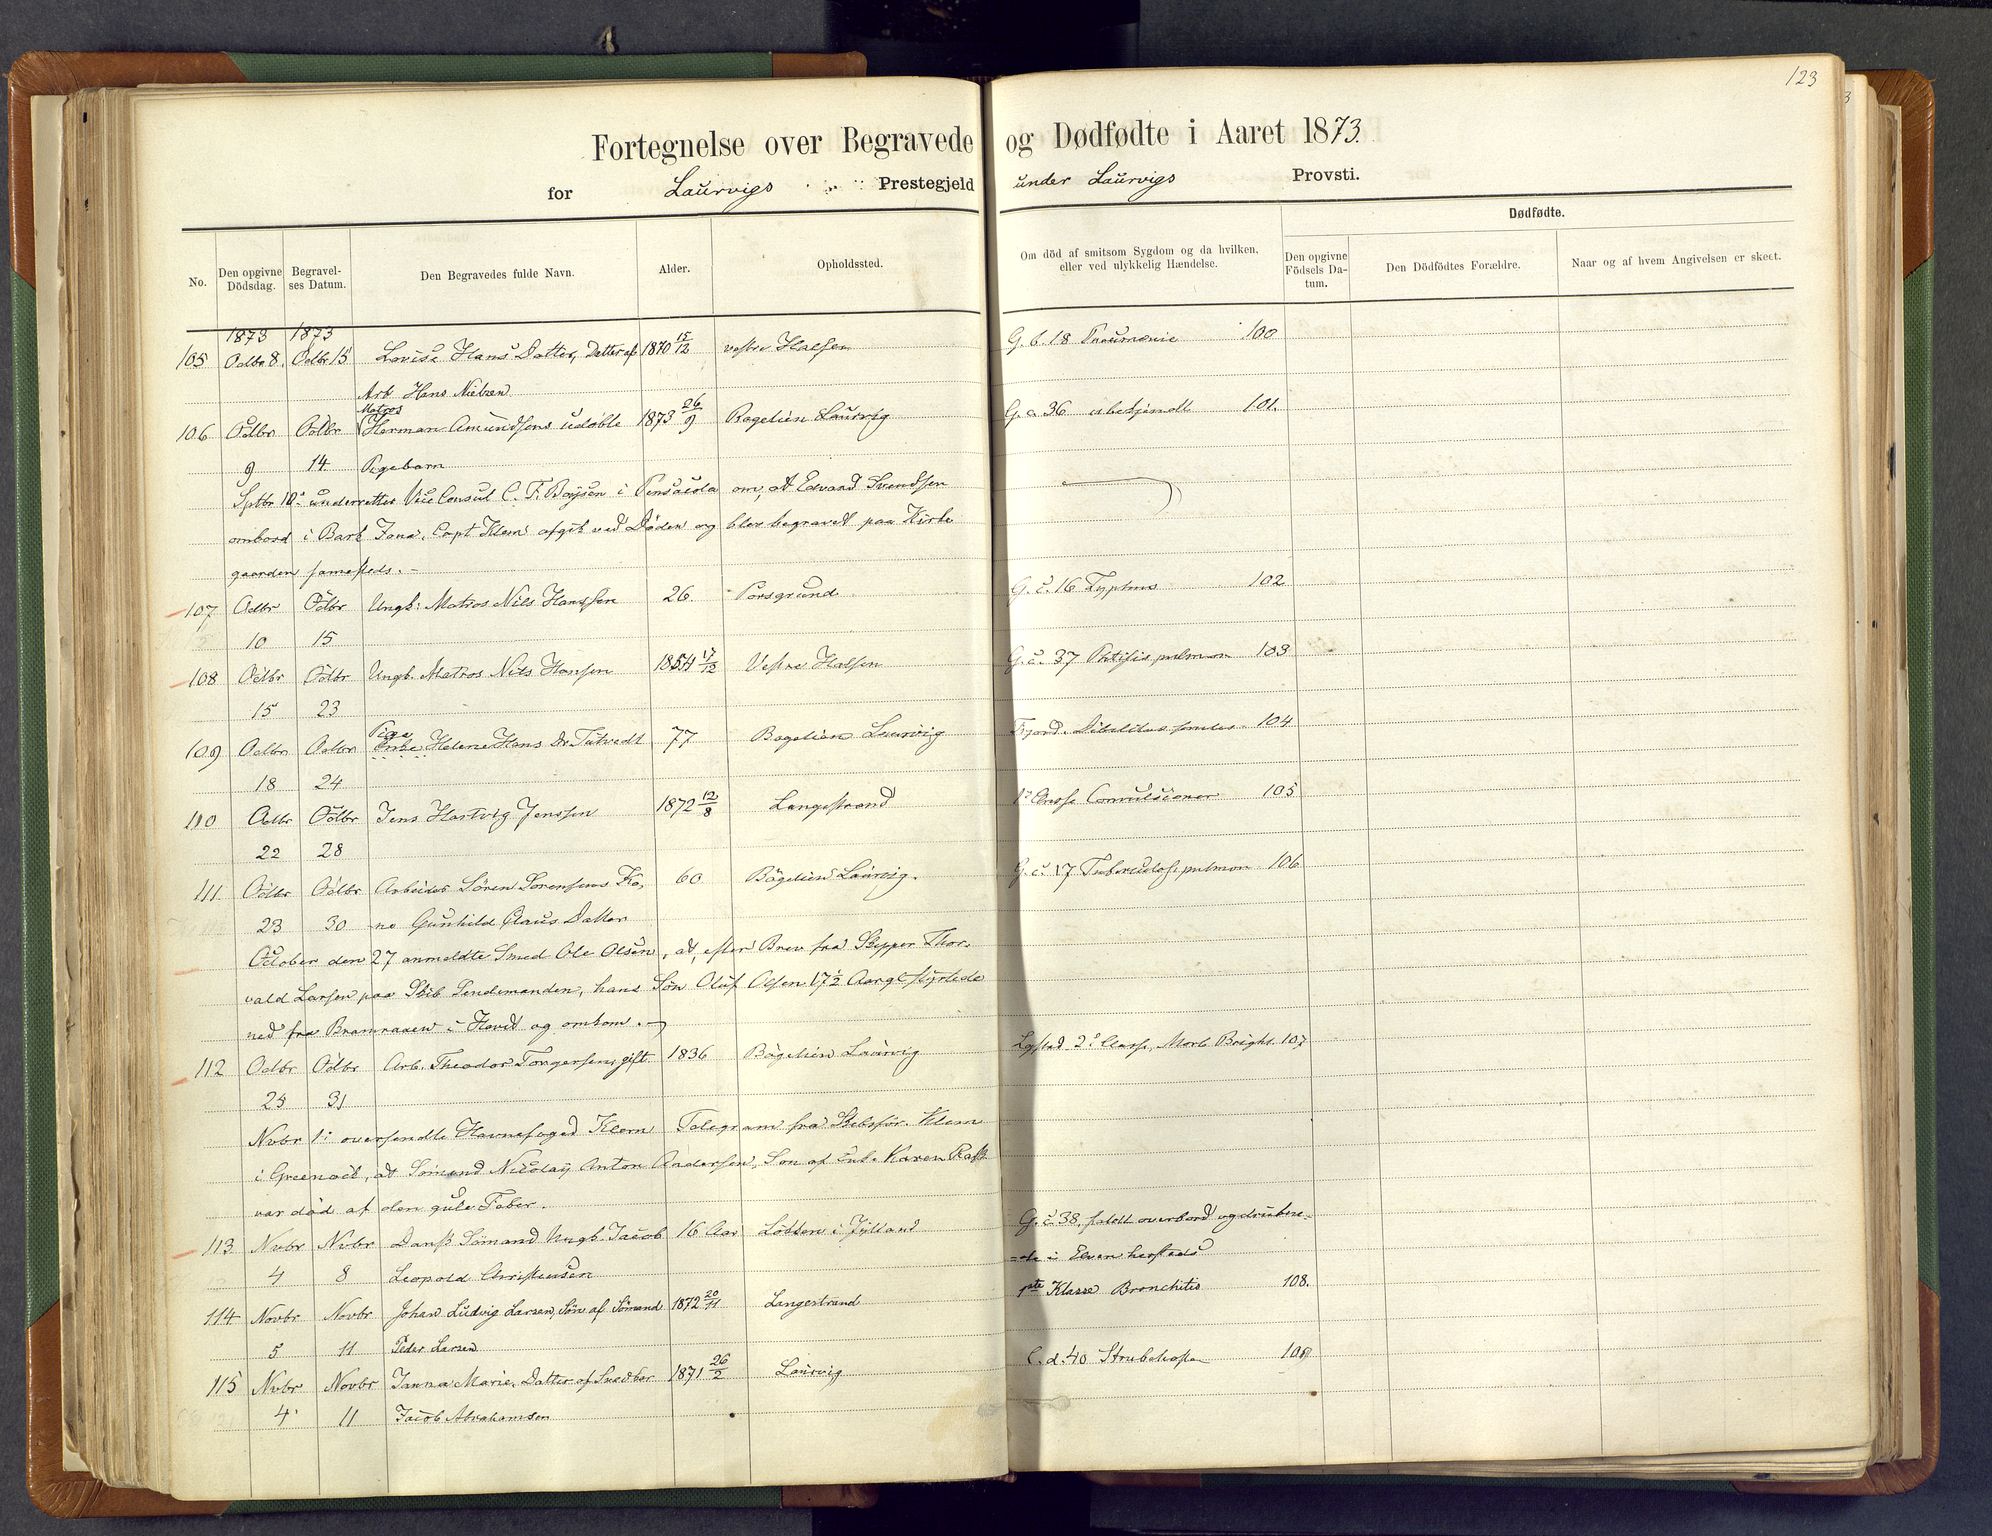 123
Fortegnelse over Begravede og Dødfødte i Aaret 1873.
for Laurvigs Prestegjeld under Laurvigs Provsti.
Dødfødte.
No. Den opgivne Dödsdag. Begravelses Datum. Den Begravedes fulde Navn. Alder. Opholdssted. Om död af smitsom Sygdom og da hvilken, eller ved ulykkelig Hændelse. Den opgivne Födsels Datum. Den Dödfödtes Forældre. Naar og af hvem Angivelsen er skeet.
1873 1873
105 Octbr 8. Octbr 15 Lovise Hans Datter, Datter af 1870 15/12 vestre Halsen G. b. 18 Pneumonie 100
Arb Hans Nielsen
Matros
106 Octbr Octbr Herman Amundsens udøbte 1873 26/9 Bøgelien Laurvig G. c. 36 ubekjendt 101.
9 14 Pigebarn
Sptbr 10: underretter Vice Consul C. F. Boysen i Pensacola om, at Edvard Svendsen
ombord i Bark Jona, Capt Klem afgik ved Døden og blev begravet paa Kirke
gaarden samesteds. -
107 Octbr Octbr Ungk: Matros Nils Hanssen 26. Porsgrund G. c. 16 Typhus 102
10 15
108 Octbr Octbr Ungk. Matros Nils Hansen 1854 17/12 Vestre Halsen G. c. 37 Phtisis pulmon 103
15 23
Pige
109 Octbr Octbr Enke Helene Hans Dr Tutvedt 77 Bøgelien Laurvig Fjord. 104
18 24
110 Octbr Octbr Jens Hartvig Jenssen 1872 12/8 Langestrand 1ste Classe Convulsioner 105
22 28
111. Octbr Octbr Arbeider Sören Sörensens Ko, 60 Bögelien Laurvig. G. c. 17 Tuberculos pulmon 106
23 30 ne Gunhild Claus Datter
October den 27 anmeldte Smed Ole Olsen, at, efter Brev fra Skipper Thor-
vald Larsen paa Skib Sendemanden, hans Sön Oluf Olsen 17½ Aar gl styrtede
ned fra Bramraaen i Havet og omkom. -
112 Octbr Octbr Arb. Theodor Torgersen, gift 1836 Bögelien Laurvig Lystad 2. Classe, Morb Brighti 107
25 31
Nvbr 1: oversendte Havnefoged Klem Telegram fra Skibsför. Klem
i Greenock, at Sömand Nicolay Anton Andersen, Sön af Enk. Karen
var död af den gule Feber.
113 Nvbr Nvbr Dansk Sömand Ungk. Jacob 16 Aar Lökken i Jylland G. c. 38, faldt overbord og drukne-
4 8 Leopold Christensen de i Elven hersteds
114 Novbr Novbr Johan Ludvig Larsen, Sön af Sömand 1872 20/11 Langestrand 1ste Klasse Bronchitis 108.
5 11 Peder Larsen
115 Nvbr Novbr Janna Marie. Datter af Snedker 1871 26/2 Laurvig C. d. 40 Strubehoste 109
4 11 Jacob Abrahamsen